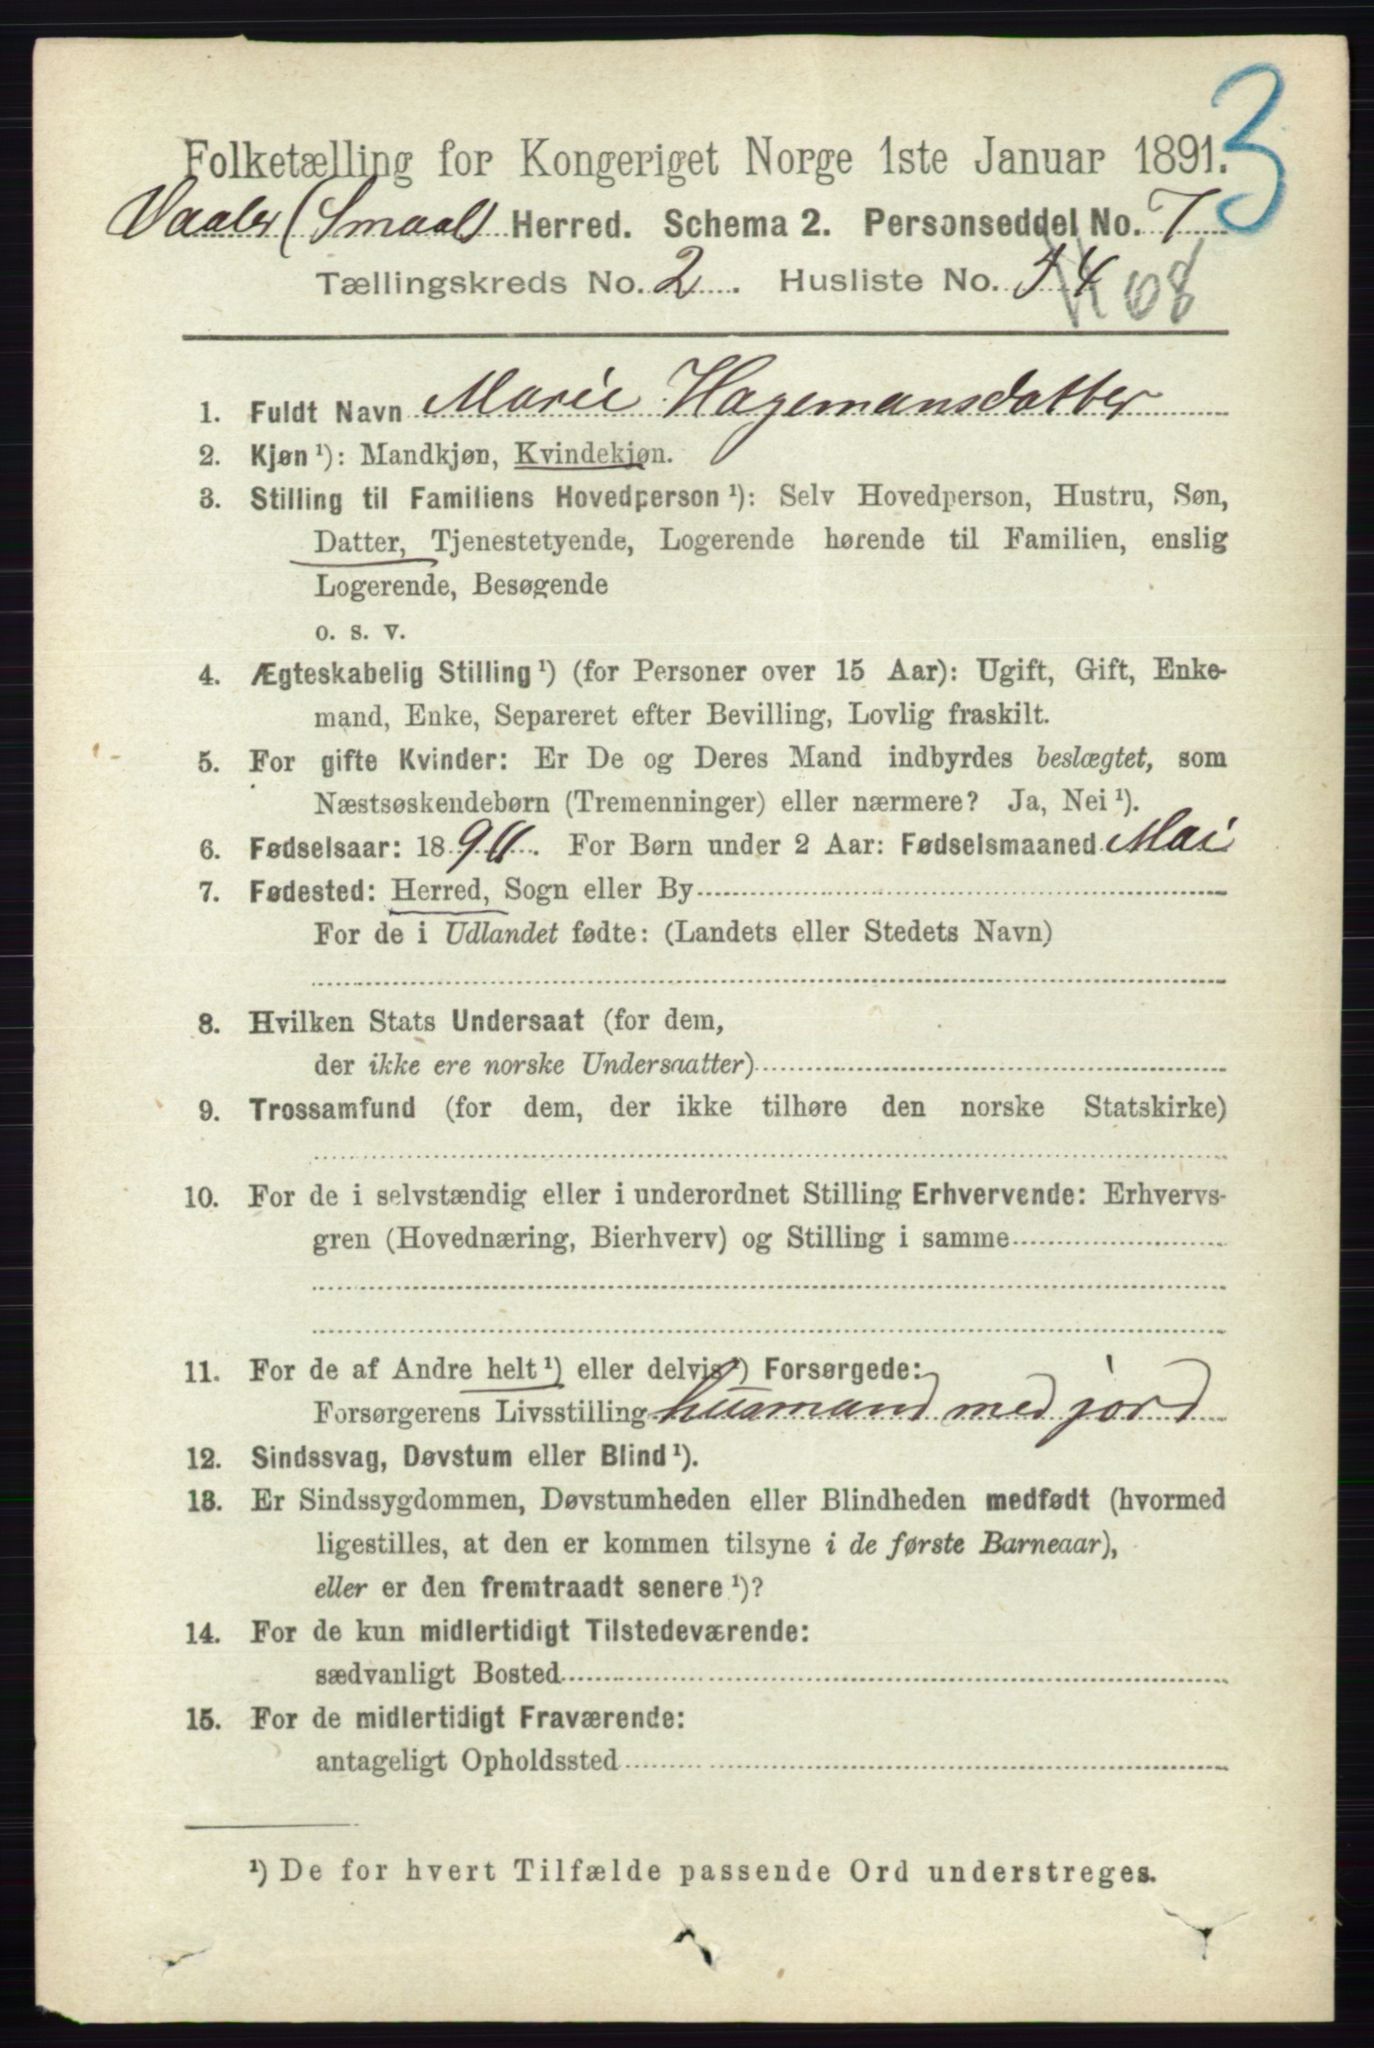 3
Folketælling for Kongeriget Norge 1ste Januar 1891.
Vaaler (Smaal) Herred. Schema 2. Personseddel No. 7
Tællingskreds No. 2. Husliste No. 54 68
1. Fuldt Navn Marie Hagemansdatter
2. Kjøn ¹): Mandkjøn, Kvindekjøn.
3. Stilling til Familiens Hovedperson ¹): Selv Hovedperson, Hustru, Søn,
Datter, Tjenestetyende, Logerende hørende til Familien, enslig
Logerende, Besøgende
o. s. v.
4. Ægteskabelig Stilling ¹) (for Personer over 15 Aar): Ugift, Gift, Enke-
mand, Enke, Separeret efter Bevilling, Lovlig fraskilt.
5. For gifte Kvinder: Er De og Deres Mand indbyrdes beslægtet, som
Næstsøskendebørn (Tremenninger) eller nærmere? Ja, Nei ¹).
6. Fødselsaar: 1890. For Børn under 2 Aar: Fødselsmaaned Mai
7. Fødested: Herred, Sogn eller By
For de i Udlandet fødte: (Landets eller Stedets Navn)
8. Hvilken Stats Undersaat (for dem,
der ikke ere norske Undersaatter)
9. Trossamfund (for dem, der ikke tilhøre den norske Statskirke)
10. For de i selvstændig eller i underordnet Stilling Erhvervende: Erhvervs-
gren (Hovednæring, Bierhverv) og Stilling i samme
11. For de af Andre helt ¹) eller delvis ¹) Forsørgede:
Forsørgerens Livsstilling husmand med jord
12. Sindssvag, Døvstum eller Blind ¹).
13. Er Sindssygdommen, Døvstumheden eller Blindheden medfødt (hvormed
ligestilles, at den er kommen tilsyne i de første Barneaar),
eller er den fremtraadt senere ¹)?
14. For de kun midlertidigt Tilstedeværende:
sædvanligt Bosted
15. For de midlertidigt Fraværende:
antageligt Opholdssted
¹) De for hvert Tilfælde passende Ord understreges.